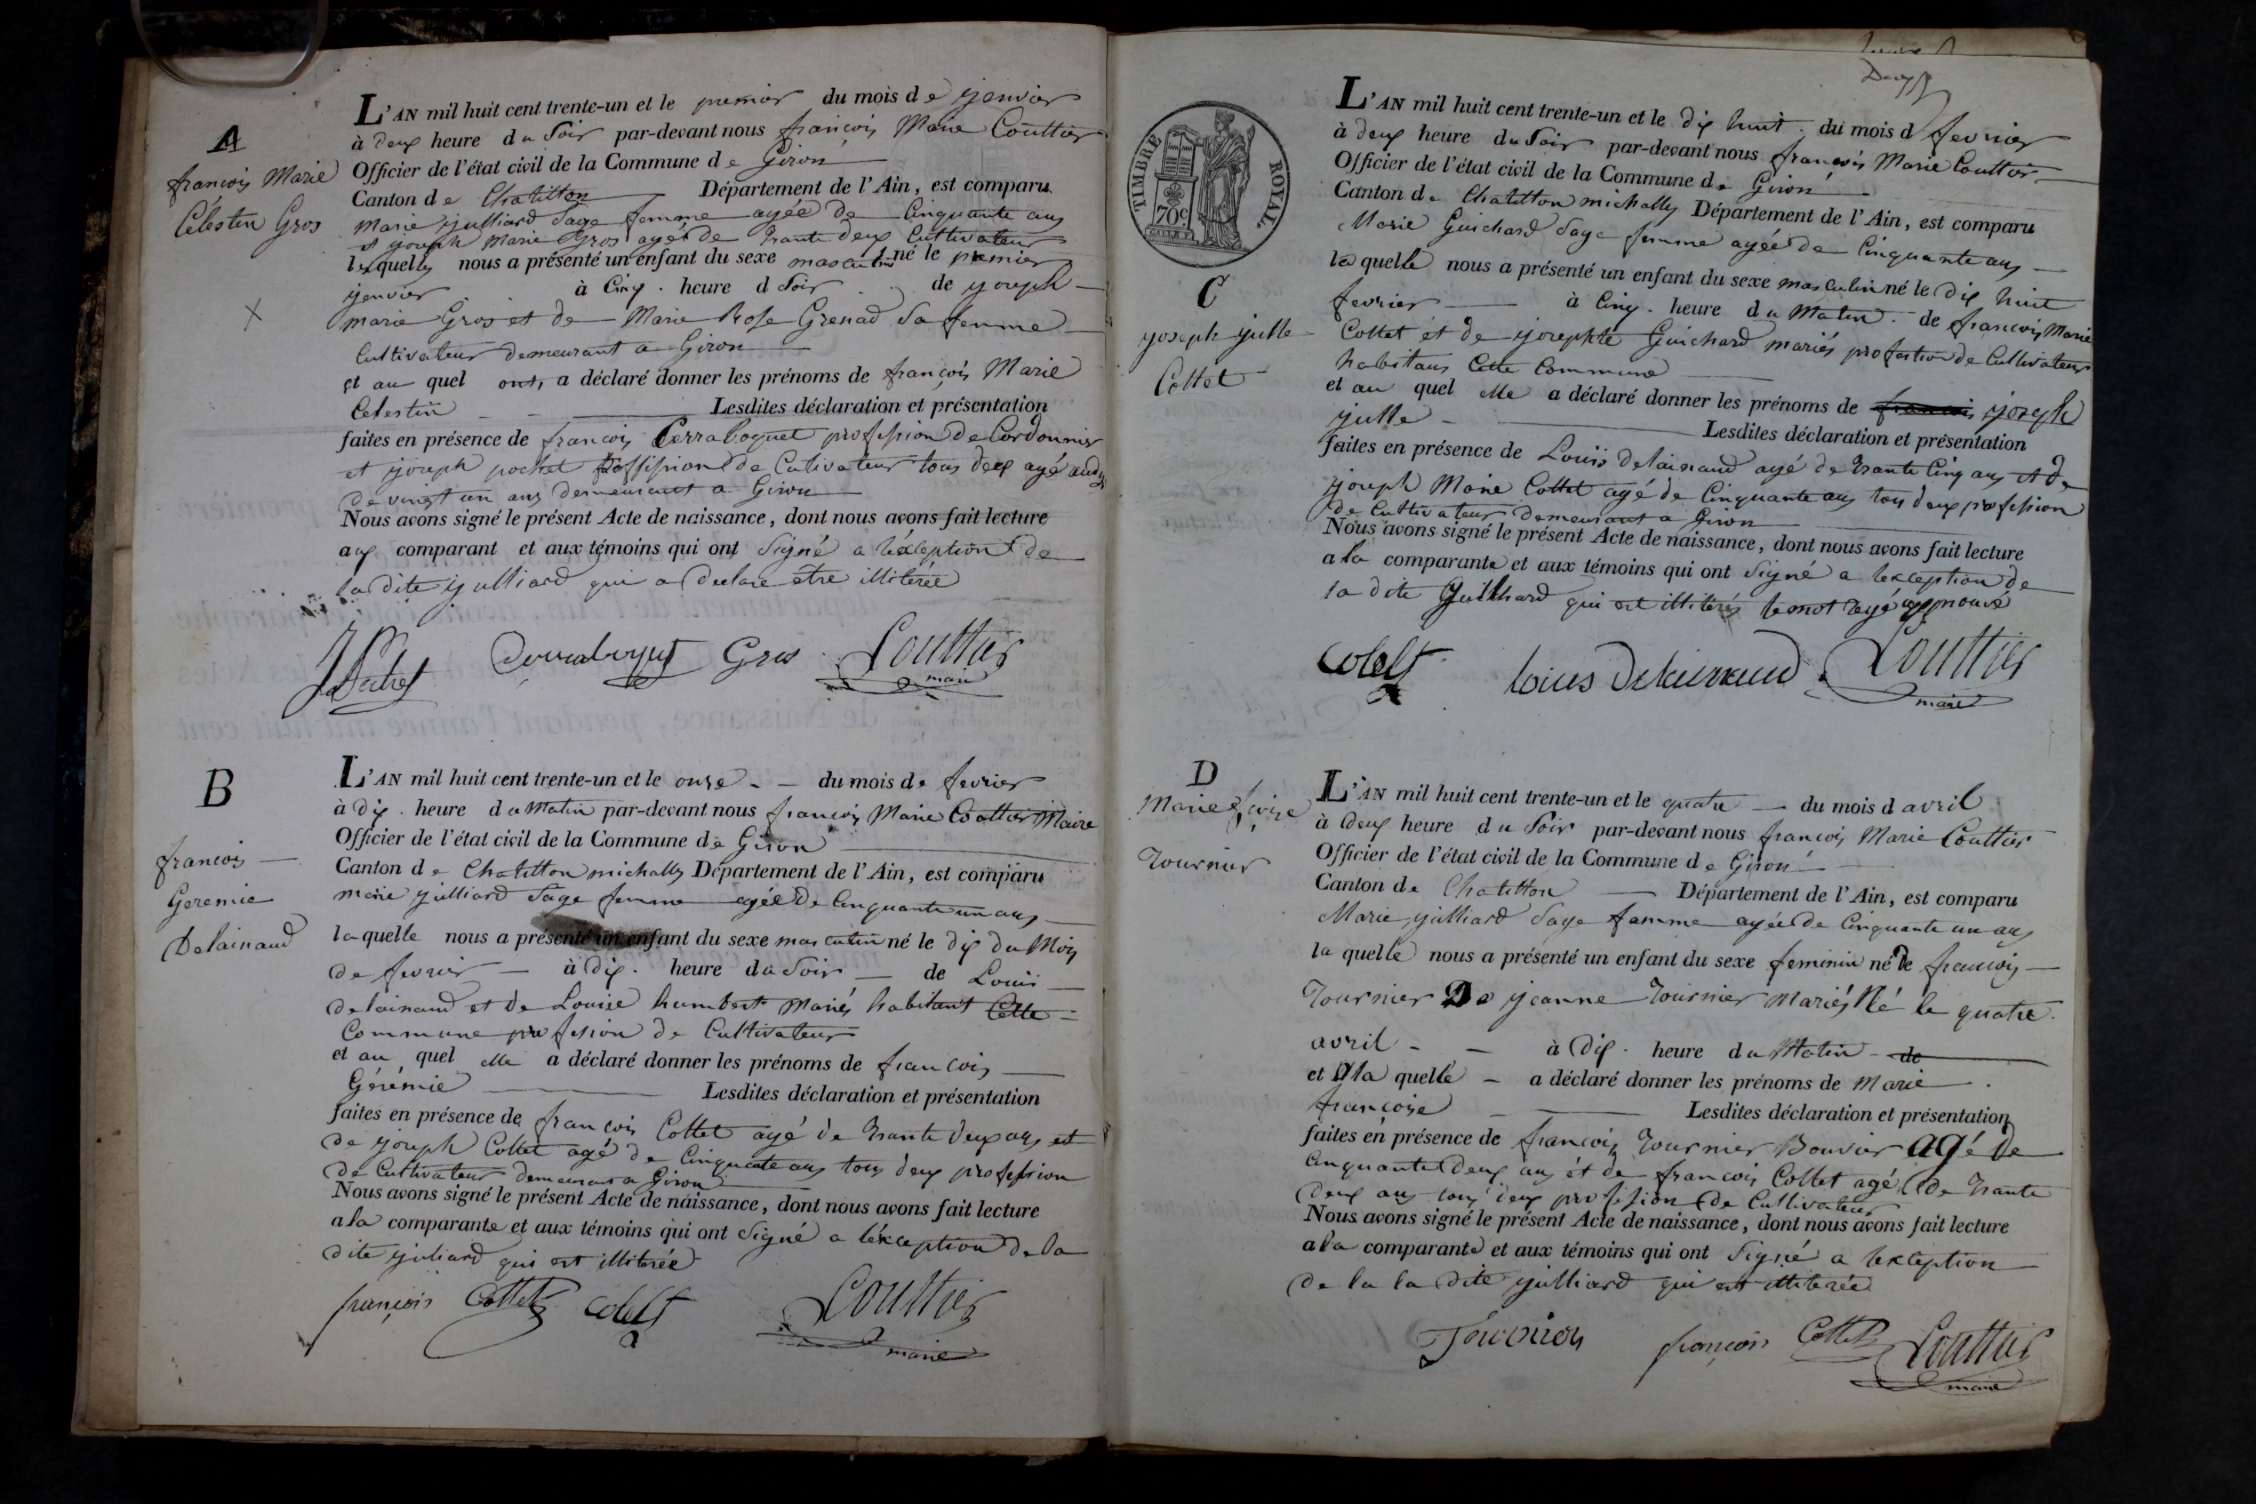 A
françois Marie
Célestin Gros
L'AN mil huit cent trente-un et le premier du mois de jenvier
à deux heure du Soir par-devant nous françois Marie Couttier
Officier de l'état civil de la Commune de Giron
Canton de Chatillon Département de l'Ain, est comparu
marie julliard Sage femme agée de Cinquante ans
et joseph marie Gros agé de trante deux Cultivateur
lesquelles nous a présenté un enfant du sexe masculin né le premier
jenvier à Cinq heure d Soir de joseph
marie Gros et de Marie Rose Grenad Sa femme
Cultivateur demeurant a Giron
et au quel ont, a déclaré donner les prénoms de françois Marie
Celestin Lesdites déclaration et présentation
faites en présence de françois Perraboquet profession de Cordonnier
et joseph pochet proffission de Cutivateur tous deux agé
de vingt un ans demeurant a Giron
Nous avons signé le présent Acte de naissance, dont nous avons fait lecture
aux comparant et aux témoins qui ont Signé a léxception de
la dite julliard qui a declare etre illiterée
Gros Couttier
maire
B
françois
Geremie
Delainaud
L'AN mil huit cent trente-un et le onze du mois de fevrier
à dix heure du Matin par-devant nous françois Marie Couttier Maire
Officier de l'état civil de la Commune de Giron
Canton de Chatillon michally Département de l'Ain, est comparu
marie julliard Sage femme agée de Cinquante un ans
laquelle nous a présenté un enfant du sexe masculin né le dix du Mois
de fevrier à dix heure du Soir de Louis
delainaud et de Louise humbert Mariés habitant Cette
Commune profesion de Cultivateur
et au quel elle a déclaré donner les prénoms de françois
Gérémie Lesdites déclaration et présentation
faites en présence de françois Cottet agé de trante deux ans et
de joseph Cottet agé de Cinquante ans tous deux profession
de Cultivateur demeurant a Giron
Nous avons signé le présent Acte de naissance, dont nous avons fait lecture
a la comparante et aux témoins qui ont Signé a léxception de la
dite juliard qui est illiterée
françois Cottet Colelt Couttier
maire
TIMBRE ROYAL
70c
C
joseph julle
Cottet
L'AN mil huit cent trente-un et le dix huit du mois d fevrier
à deux heure du Soir par-devant nous françois Marie Couttier
Officier de l'état civil de la Commune de Giron
Canton de Chatillon michally Département de l'Ain, est comparu
Marie Guichard Sage femme agée de Cinquante ans
la quelle nous a présenté un enfant du sexe masculin né le dix huit
fevrier à Cinq heure du Matin de françois Marie
Cottet et de josephte Guichard mariés profession de Cultivateur
habitans Cette Commune
et au quel elle a déclaré donner les prénoms de françois joseph
julle Lesdites déclaration et présentation
faites en présence de Louis Delainaud agé de trante Cinq ans et de
joseph Marie Cottet agé de Cinquante ans tous deux profession
de Cultivateur demeurant a Giron
Nous avons signé le présent Acte de naissance, dont nous avons fait lecture
a la comparante et aux témoins qui ont Signé a lexception de
la dite Guichard qui est illiterés le mot rayé approuvé
Colelt Louis Delainaud Couttier
maire
D
Marie
Tournier
L'AN mil huit cent trente-un et le quatre du mois d avril
à deux heure du Soir par-devant nous françois Marie Couttier
Officier de l'état civil de la Commune de Giron
Canton de Chatillon Département de l'Ain, est comparu
Marie julliard Sage famme agée de Cinquante un ans
la quelle nous a présenté un enfant du sexe feminin né de françois
Tournier De jeanne Tournier Mariés Né le quatre
avril à dix heure du Matin de
et A la quelle a déclaré donner les prénoms de Marie
françoise Lesdites déclaration et présentation
faites en présence de françois Tournier Bouvier agé de
Cinquante deux ans ét de françois Cottet agé de trante
deux ans tous deux profession de Cultivateur
Nous avons signé le présent Acte de naissance, dont nous avons fait lecture
a la comparante et aux témoins qui ont Signé a lexception
de la la dite julliard qui est illiterée
françois Cottet Couttier
maire